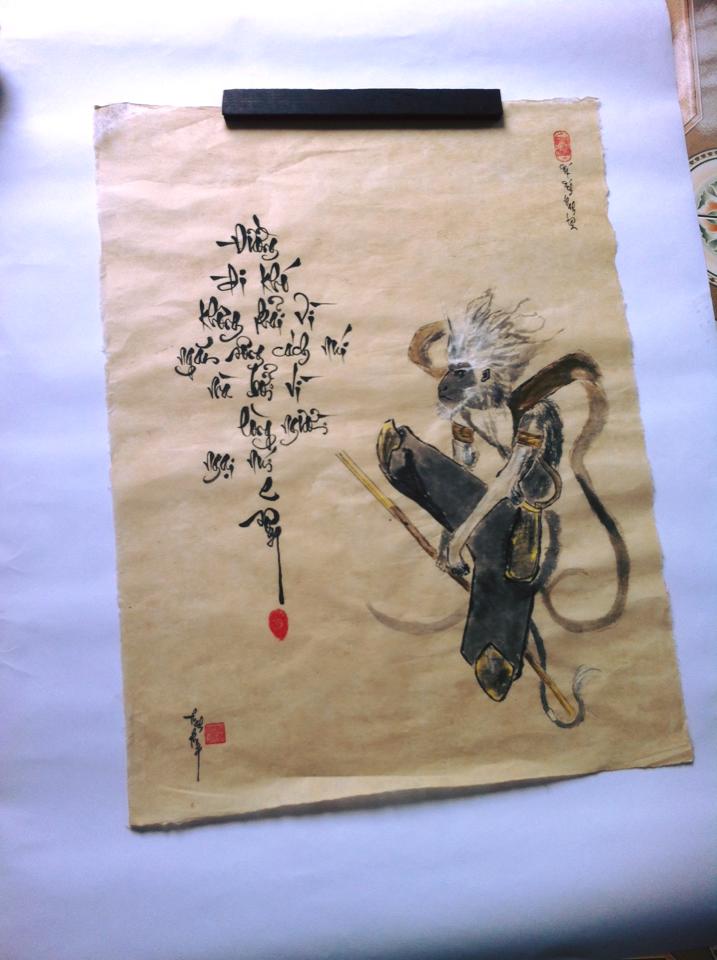 Đường
Đi khó
không phải vì
ngăn sông cách núi
mà bởi vì
lòng người
ngại núi
e
sông